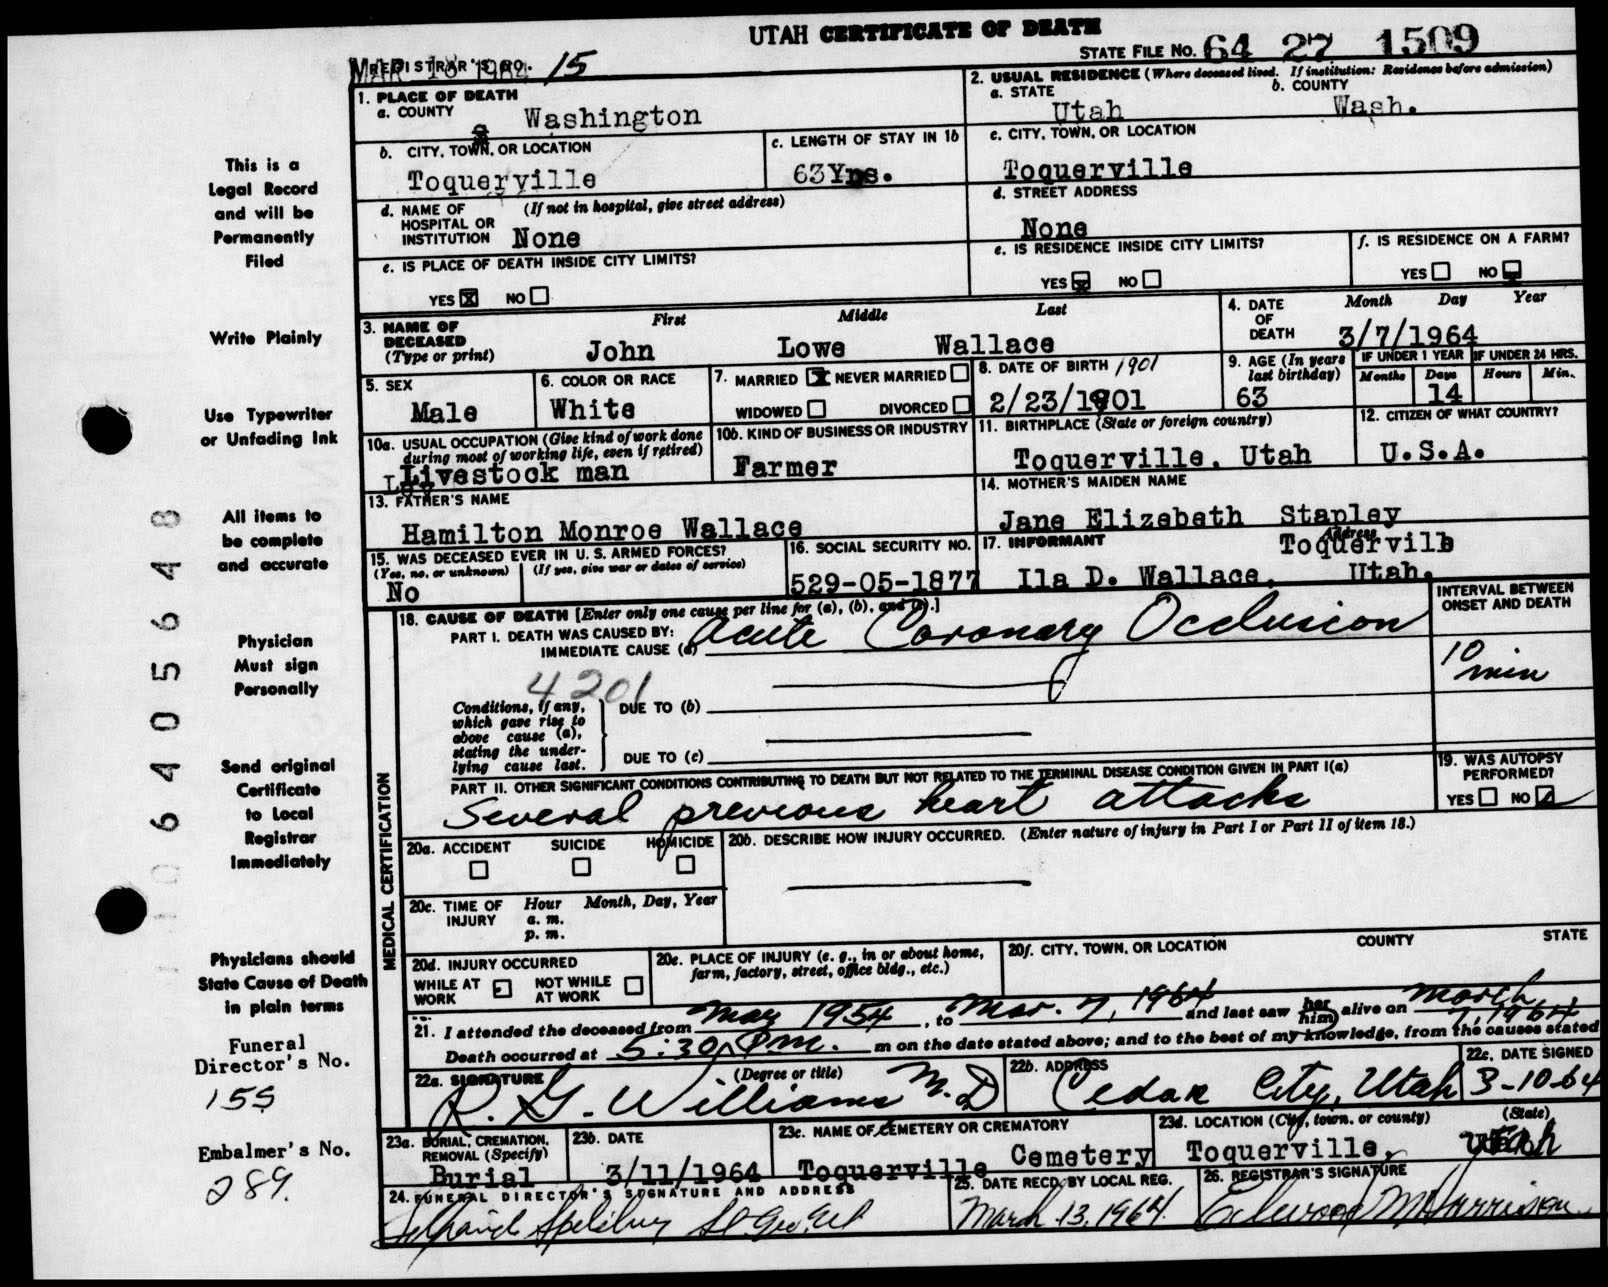 UTAH CERTIFICATE OF DEATH
STATE FILE NO. 64 27 1509
REGISTRAR'S NO. 15
1. PLACE OF DEATH
a. COUNTY Washington
2. USUAL RESIDENCE (Where deceased lived. If institution: Residence before admission)
a. STATE Utah b. COUNTY Wash.
b. CITY, TOWN, OR LOCATION Toquerville
c. LENGTH OF STAY IN 1b 63Yrs.
c. CITY, TOWN, OR LOCATION Toquerville
d. NAME OF HOSPITAL OR INSTITUTION (If not in hospital, give street address) None
d. STREET ADDRESS None
e. IS PLACE OF DEATH INSIDE CITY LIMITS?
YES X NO
e. IS RESIDENCE INSIDE CITY LIMITS?
YES X NO
f. IS RESIDENCE ON A FARM?
YES NO
3. NAME OF DECEASED (Type or print)
First Middle Last
John Lowe Wallace
4. DATE OF DEATH Month Day Year
3/7/1964
5. SEX Male
6. COLOR OR RACE White
7. MARRIED X NEVER MARRIED
WIDOWED DIVORCED
8. DATE OF BIRTH 1901
2/23/1901
9. AGE (In years last birthday) 63
IF UNDER 1 YEAR IF UNDER 24 HRS.
Months Days Hours Min.
14
10a. USUAL OCCUPATION (Give kind of work done during most of working life, even if retired)
Livestock man
10b. KIND OF BUSINESS OR INDUSTRY
Farmer
11. BIRTHPLACE (State or foreign country)
Toquerville, Utah
12. CITIZEN OF WHAT COUNTRY?
U.S.A.
13. FATHER'S NAME
Hamilton Monroe Wallace
14. MOTHER'S MAIDEN NAME
Jane Elizebeth Stapley
15. WAS DECEASED EVER IN U. S. ARMED FORCES?
(Yes, no, or unknown) (If yes, give war or dates of service)
No
16. SOCIAL SECURITY NO.
529-05-1877
17. INFORMANT Address
Toquervill
Ila D. Wallace, Utah.
18. CAUSE OF DEATH [Enter only one cause per line for (a), (b), and (c).]
PART I. DEATH WAS CAUSED BY:
IMMEDIATE CAUSE (a) Acute Coronary Occlusion
INTERVAL BETWEEN ONSET AND DEATH
10 min
4201
Conditions, if any, which gave rise to above cause (a), stating the underlying cause last.
DUE TO (b)
DUE TO (c)
PART II. OTHER SIGNIFICANT CONDITIONS CONTRIBUTING TO DEATH BUT NOT RELATED TO THE TERMINAL DISEASE CONDITION GIVEN IN PART I(a)
Several previous heart attacks
19. WAS AUTOPSY PERFORMED?
YES NO
MEDICAL CERTIFICATION
20a. ACCIDENT SUICIDE HOMICIDE
20b. DESCRIBE HOW INJURY OCCURRED. (Enter nature of injury in Part I or Part II of item 18.)
20c. TIME OF INJURY Hour Month, Day, Year
a. m.
p. m.
20d. INJURY OCCURRED
WHILE AT WORK NOT WHILE AT WORK
20e. PLACE OF INJURY (e. g., in or about home, farm, factory, street, office bldg., etc.)
20f. CITY, TOWN, OR LOCATION COUNTY STATE
21. I attended the deceased from May 1954, to Mar. 7, 1964 and last saw her him alive on March 7, 1964
Death occurred at 5:30 P.m. m on the date stated above; and to the best of my knowledge, from the causes stated
22a. SIGNATURE (Degree or title)
R. G. Williams M.D
22b. ADDRESS
Cedar City, Utah
22c. DATE SIGNED
3-10-64
23a. BURIAL, CREMATION, REMOVAL (Specify)
Burial
23b. DATE
3/11/1964
23c. NAME OF CEMETERY OR CREMATORY
Toquerville Cemetery
23d. LOCATION (City, town, or county) (State)
Toquerville, Utah
24. FUNERAL DIRECTOR'S SIGNATURE AND ADDRESS
Spilsbury St. Geo. Ut
25. DATE RECD. BY LOCAL REG.
March 13, 1964
26. REGISTRAR'S SIGNATURE
This is a
Legal Record
and will be
Permanently
Filed
Write Plainly
Use Typewriter
or Unfading Ink
All items to
be complete
and accurate
Physician
Must sign
Personally
Send original
Certificate
to Local
Registrar
Immediately
Physicians should
State Cause of Death
in plain terms
Funeral
Director's No.
155
Embalmer's No.
289.